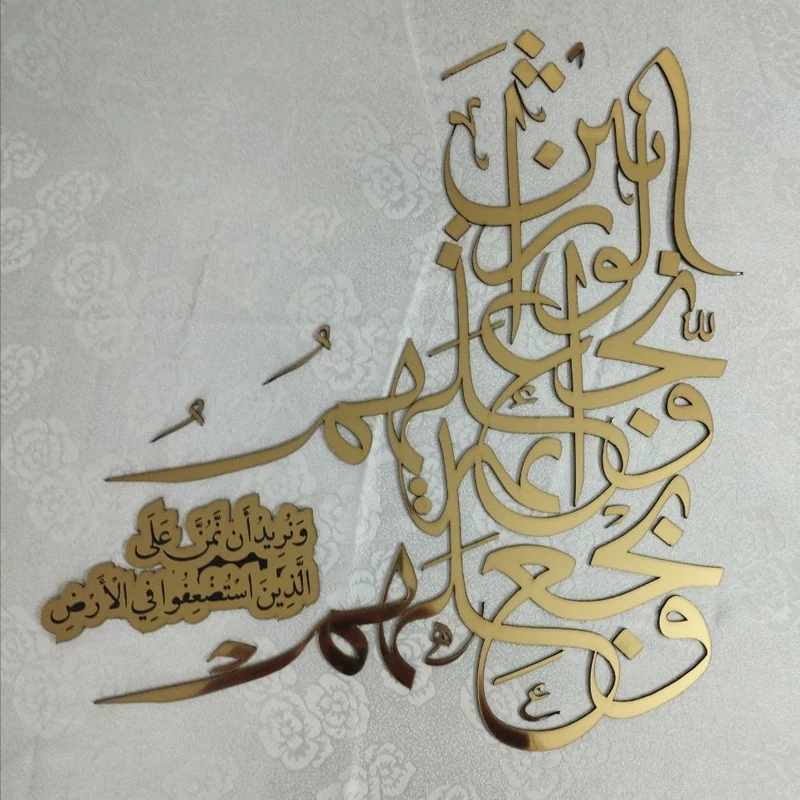 وَنُرِيدُ أَن نَّمُنَّ عَلَى
الَّذِينَ اسْتُضْعِفُوا فِي الْأَرْضِ
ونجعلهم
أئمة
ونجعلهم
الوارثين